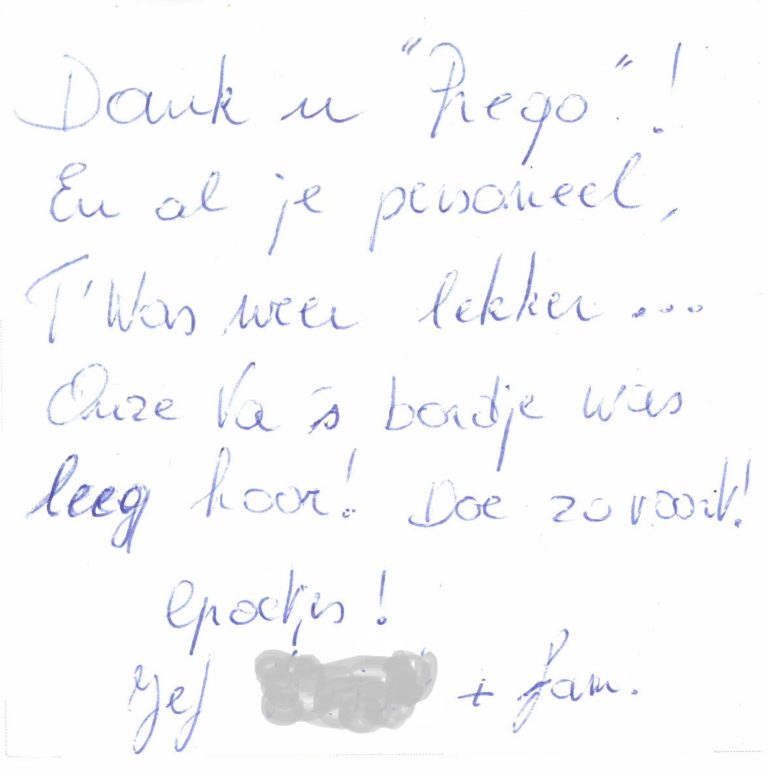 Dank u "Prego"!
En al je personeel,
T'Was weer lekker...
Onze Va 's bordje was
leeg hoor! Doe zo voort!
Groetjes!
Jef + fam.